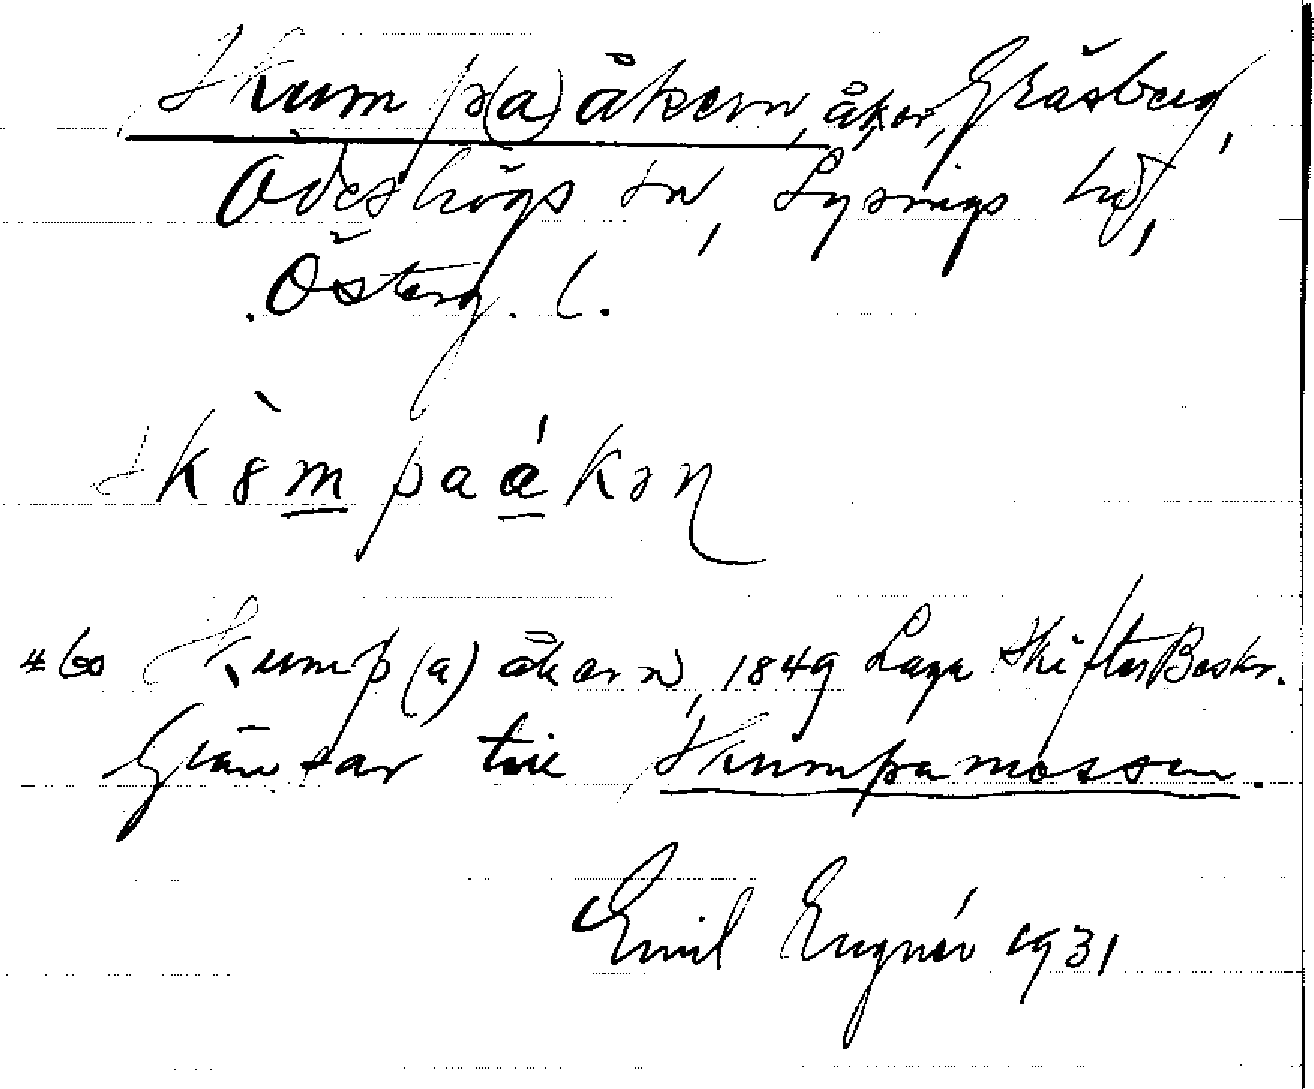 Skump(a)åkern, åker, Gråsberg,
Ödeshögs sn, Lysings hd,
Österg. l.
skòmpaákən
460 Skump(a)åkern, 1849 Laga Skiftes Beskr.
Gränsar till Skumpamossen.
Emil Engnér 1931